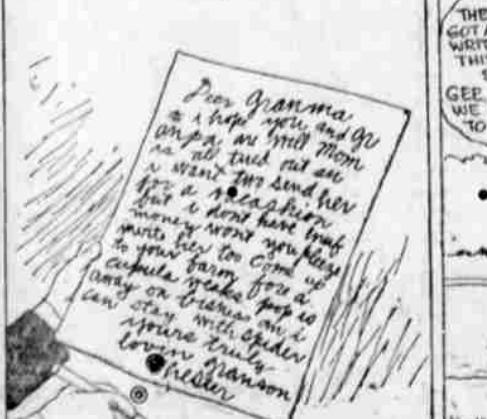 Deer Granma
i hope you and gr
anpa are well mom
is all tired out an
i want two send her
for a vacashion
but i dont have enuf
money wont you pleeze
invite her too come up
to your farm fore a
cupula weaks pop is
away on bisnis an i
can stay with spider
yours truly
lovin granson
Chester
THE
GOT A
WRIT
THI
GEE
WE
TO